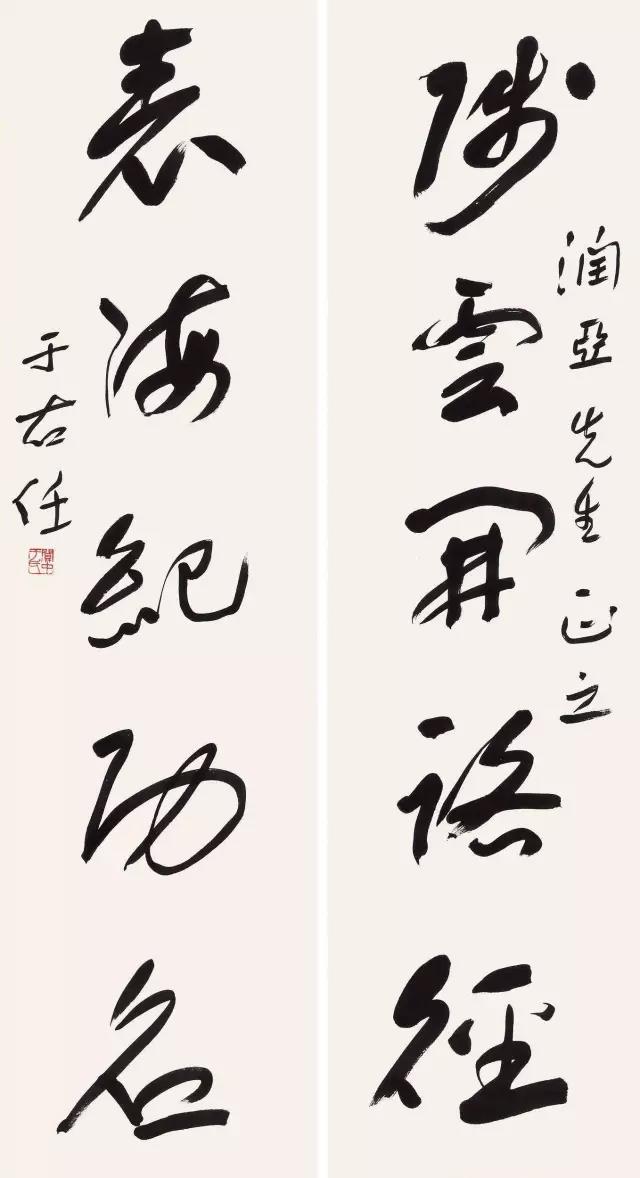 潤亞先生正之
雲開徑
表海紀功名
于右任
關中于氏